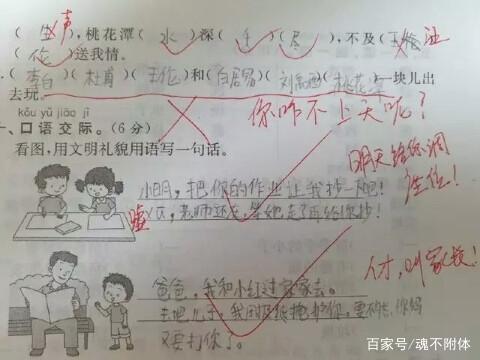 ( 生声 ),桃花潭( 水 )深( 千 )( 尽 ),不及( 王 汪
( 伦 )送我情。
( 李白 )( 杜甫 )( 王伦 )和( 白居易 )( 刘禹西 )( 桃花 一块儿出
去玩。
你咋不上天呢?
kǒu yǔ jiāo jì
一、口语交际。(6分)
看图,用文明礼貌用语写一句话。
小明,把你的作业让我抄一下吧!
嘘 老师还在,等她走了再给你抄!
明天给你调
座位!
爸爸,我和小红过家家去。
去吧儿子,我
你妈
又要打你了。
人才,叫家长!
百家号/魂不附体